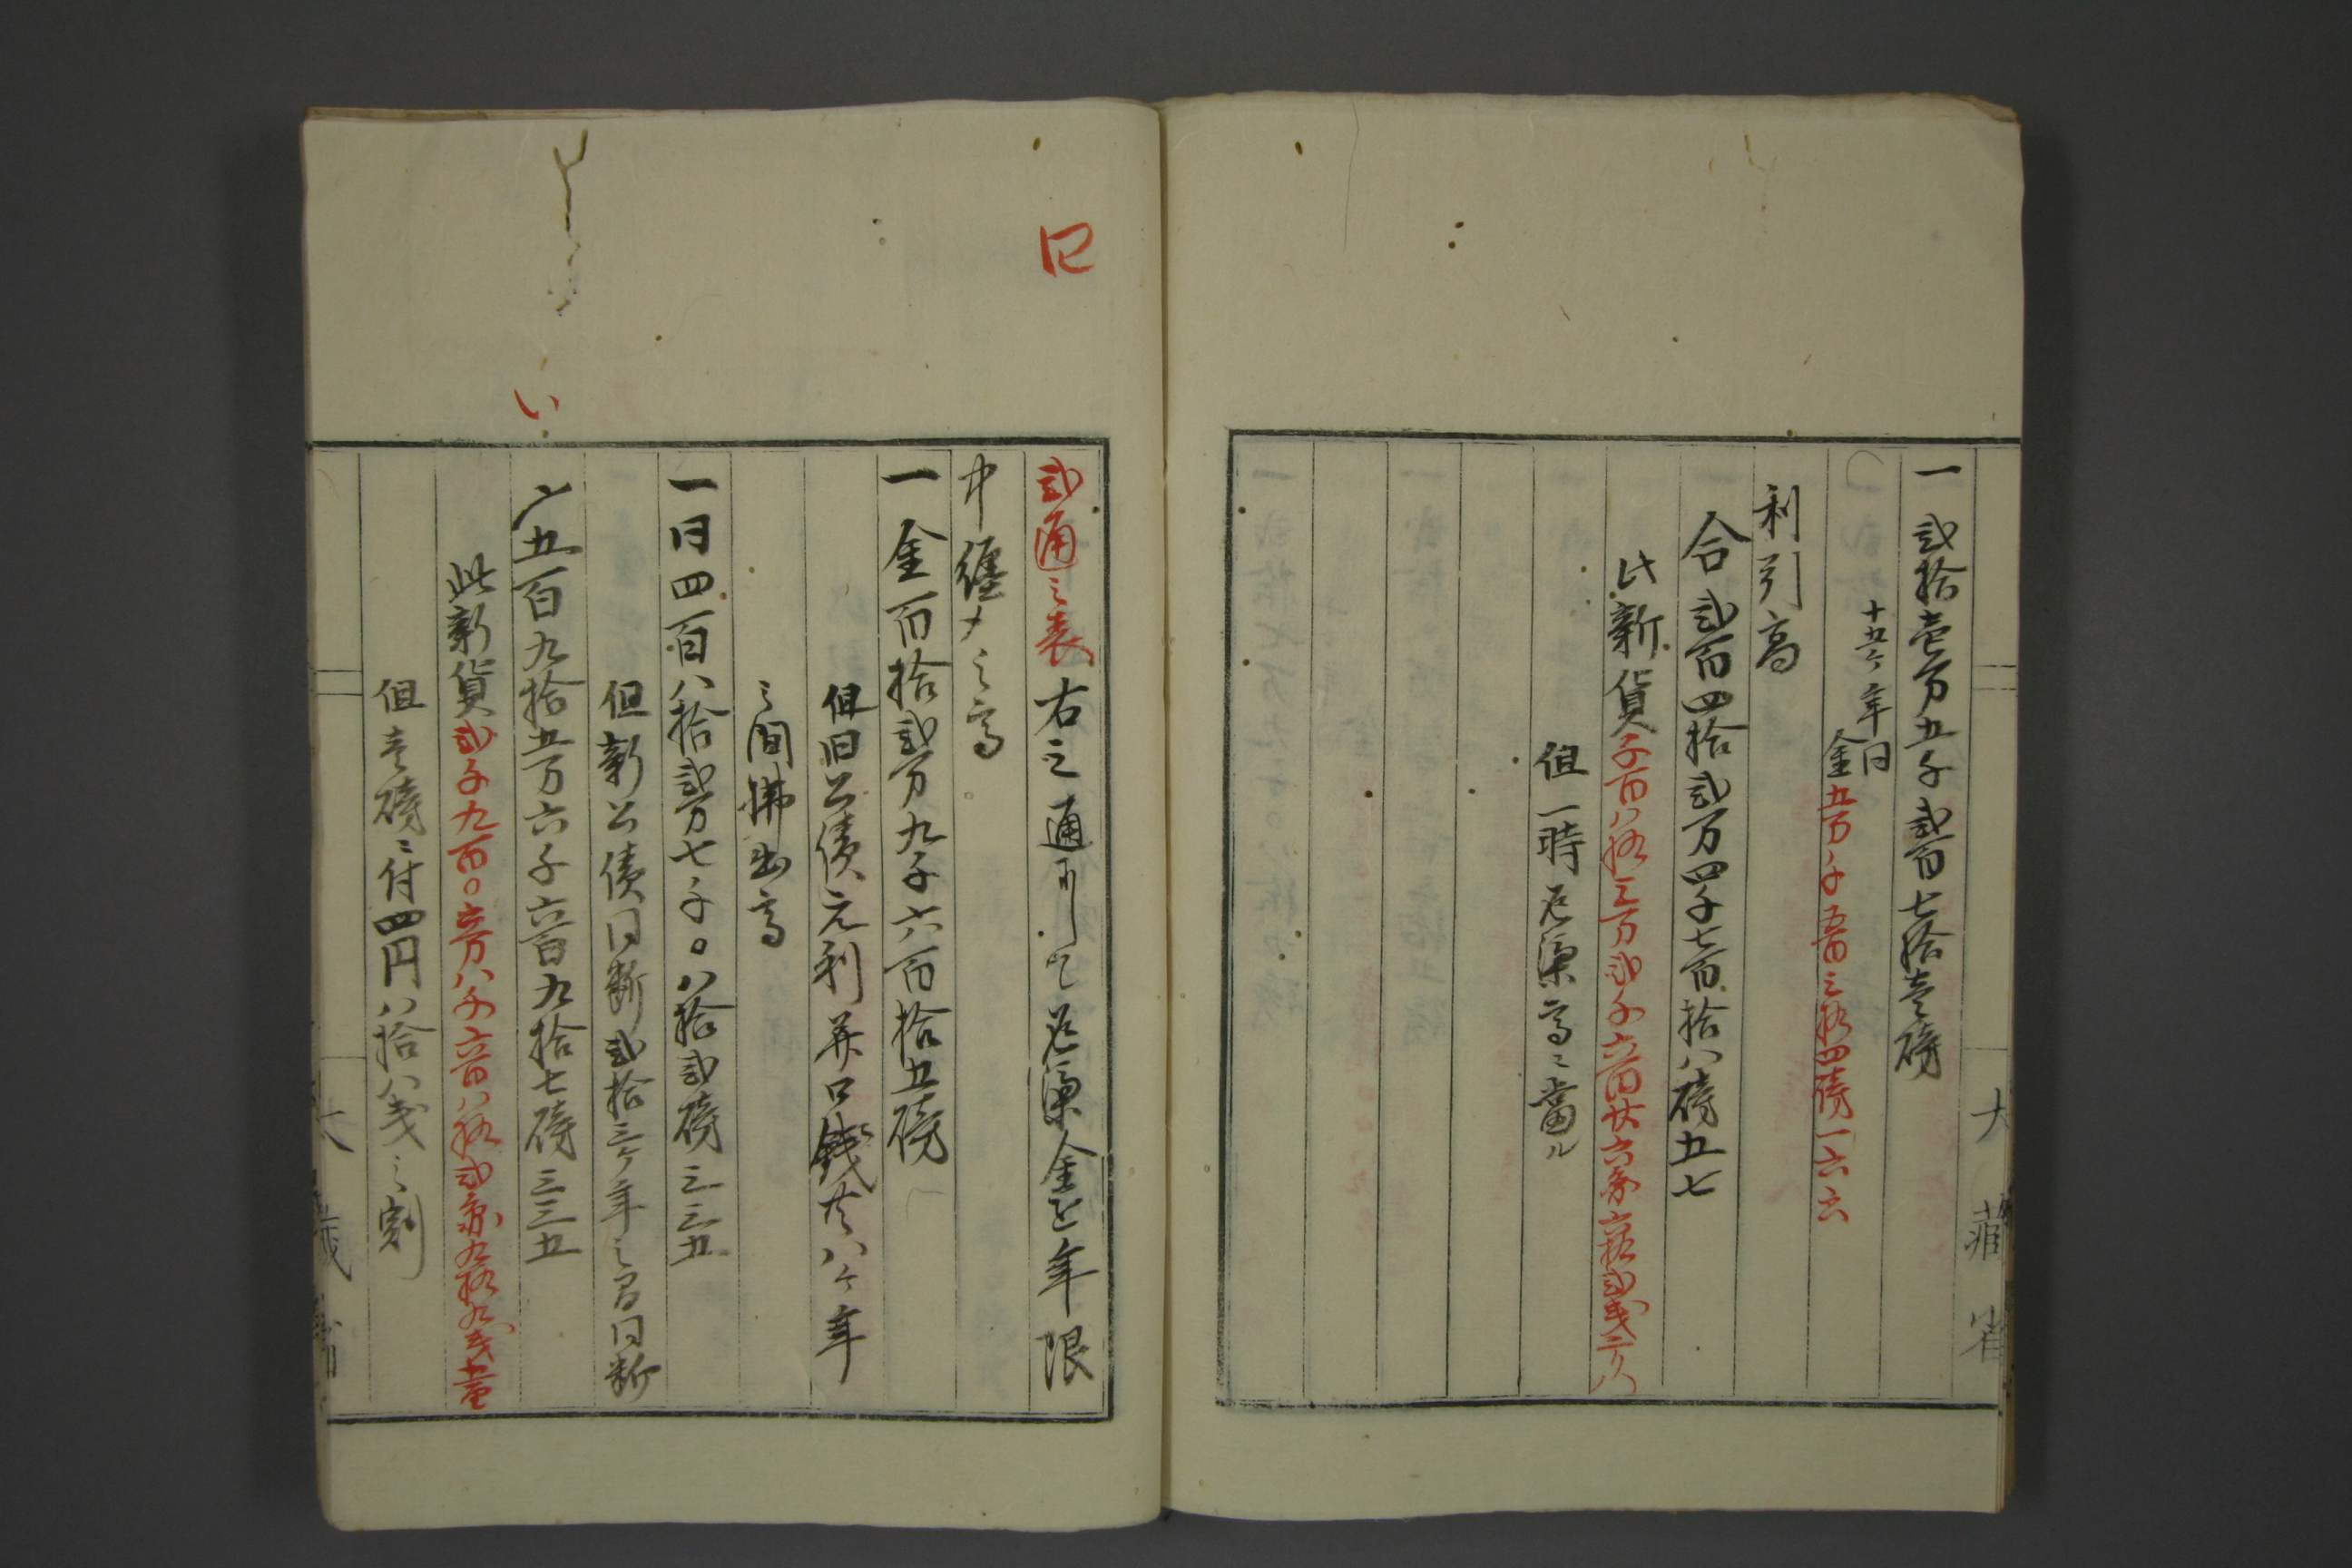 一 弐拾壱万五千弐百七拾壱磅
十五ケ年
金五万〃千五百三拾四磅一六六
利引高
合弐百四拾弐万四千七百拾八磅五七
此新貨千百八拾三万弐千六百廿六円六拾弐戋三り
但一時ニ渡高ニ當ル
大藏省
巳
弐通之表右之通ニして渡金を年限
中纏〆之高
一金百拾弐万九千六百拾五磅
但旧公債元利并口銭共八ケ年
之間拂出高
一同四百八拾弐万七千〇八拾弐磅三三五
但新公債同断弐拾三ケ年之間同断
い
〆五百九拾五万六千六百九拾七磅三三五
此新貨弐千九百〇壱万八千六百八拾弐
但壱磅ニ付四円八拾八戋之割